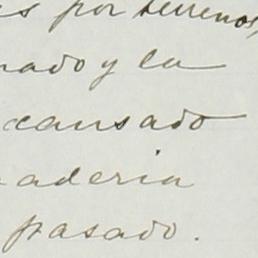 es por terrenos,
nado y la
causado
naderia
pasado.